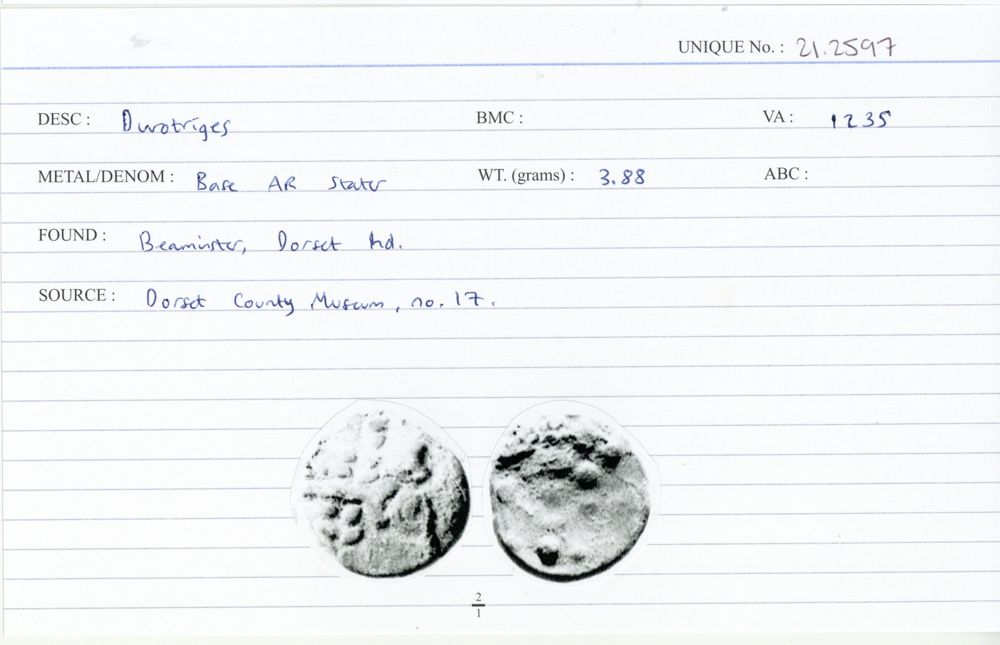 UNIQUE No. : 21.2597
DESC : Durotriges BMC : VA : 1235
METAL/DENOM : Base AR Stater WT. (grams) : 3.88 ABC :
FOUND : Beaminster, Dorset hd.
SOURCE : Dorset County Museum, no. 17.
2
1